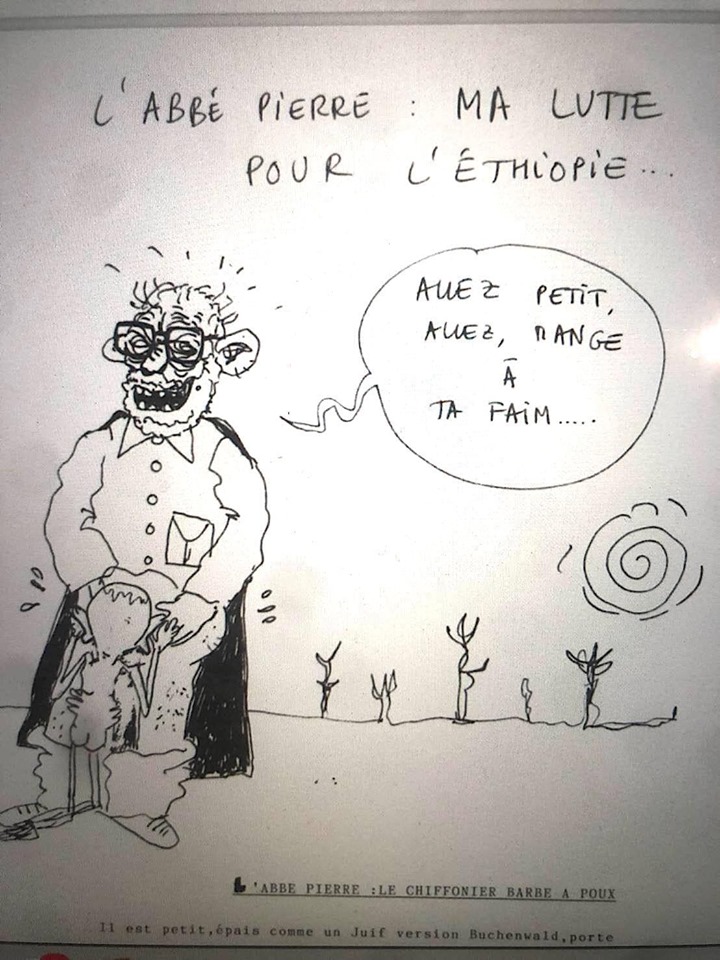 L'ABBÉ PIERRE : MA LUTTE
POUR L'ÉTHIOPIE...
ALLEZ PETIT,
ALLEZ, MANGE
À
TA FAIM.....
L'ABBE PIERRE :LE CHIFFONIER BARBE A POUX
Il est petit,épais comme un Juif version Buchenwald,porte